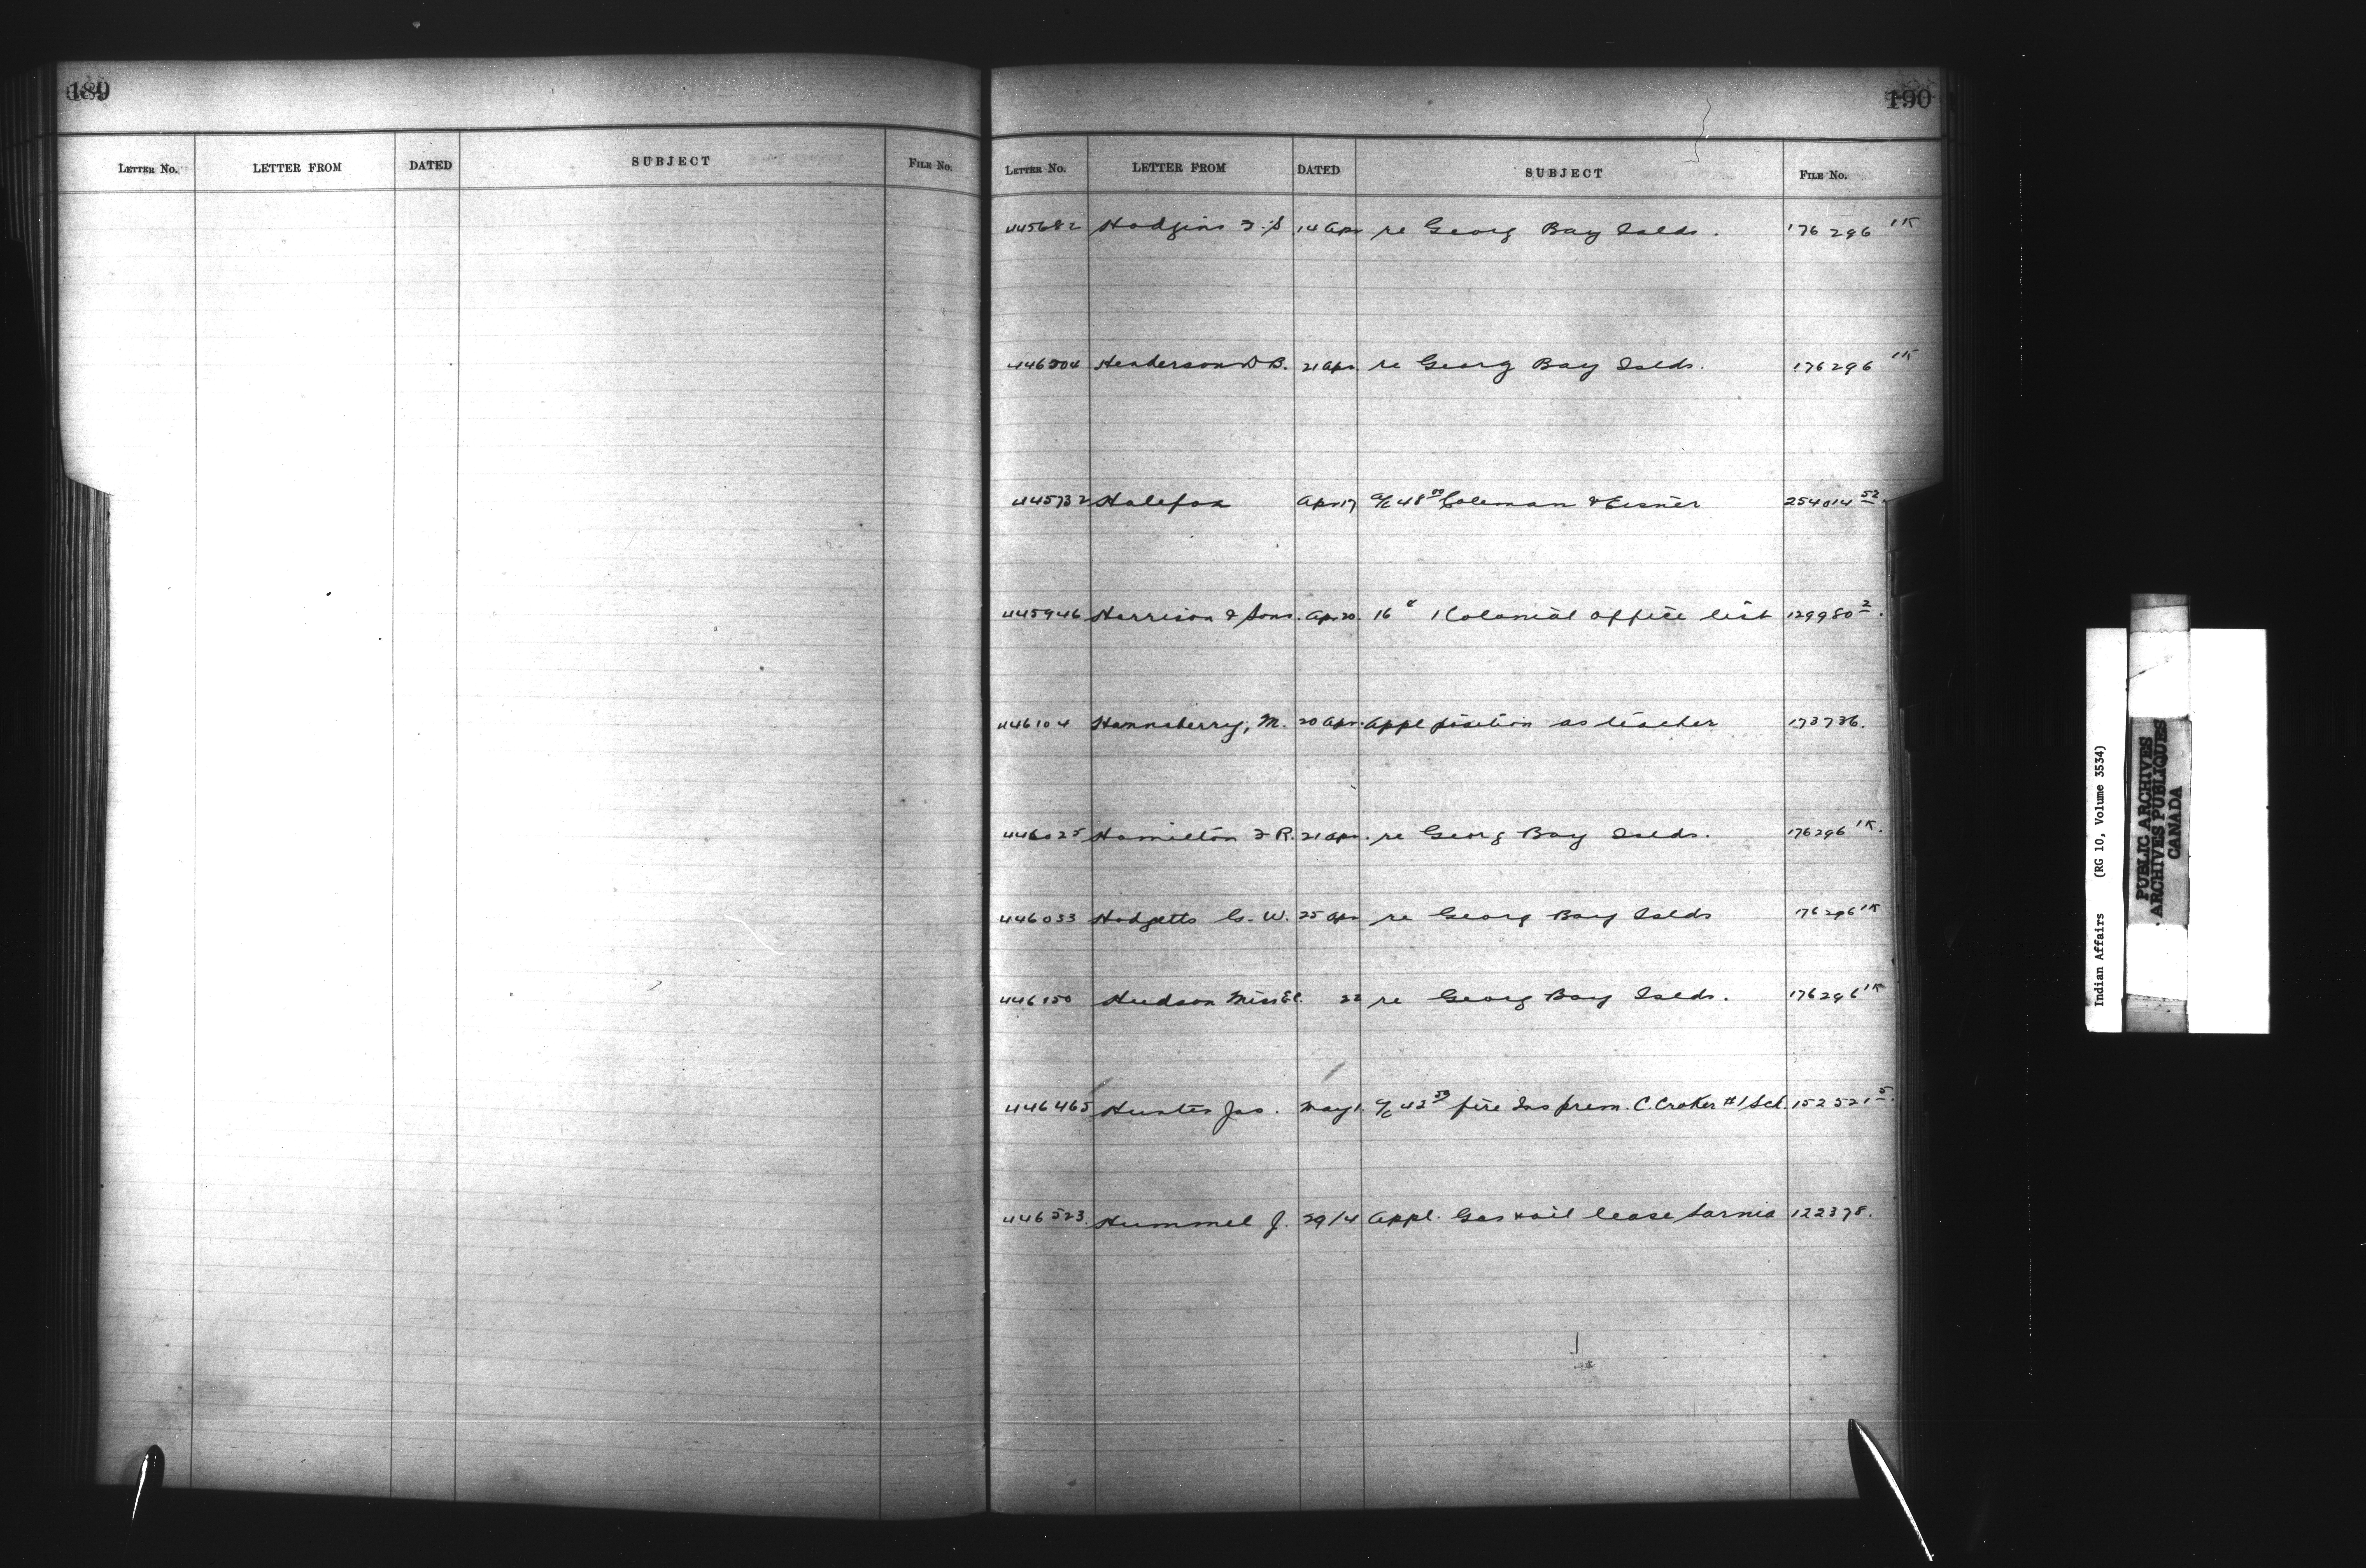 189
LETTER NO. LETTER FROM DATED SUBJECT FILE NO.
190
LETTER NO. LETTER FROM DATED SUBJECT FILE NO.
445682 Hodgins F. S 14 Apr re Georg Bay Islds. 176296 1K
446304 Henderson D B. 21 Apr. re Georg Bay Islds. 176296 1K
445732 Halifax Apr 17 a/c 48 00 Coleman & Eisner 254014 52
445946 Harrison & Sons. Ap. 20. 16 1 Colonial office list 129980 2.
446104 Hannaberry, M. 20 Apr. Appl position as teacher 173736.
446025 Hamilton F R. 21 Apr. re Georg Bay Islds. 176296 1K.
446033 Hodgetts G. W. 25 Apr re Georg Bay Islds 176296 1K
446150 Hudson Miss 22 re Georg Bay Islds. 176296 1K
446465 Hunter Jas. May 1. a/c 42 50 fire Ins prem. C. Croker #1 Sch. 152521
446523. Hummel J. 29/4 Appl. Gas & oil lease Sarnia 122378.
Indian Affairs (RG 10, Volume 3534)
PUBLIC ARCHIVES
ARCHIVES PUBLIQUES
CANADA